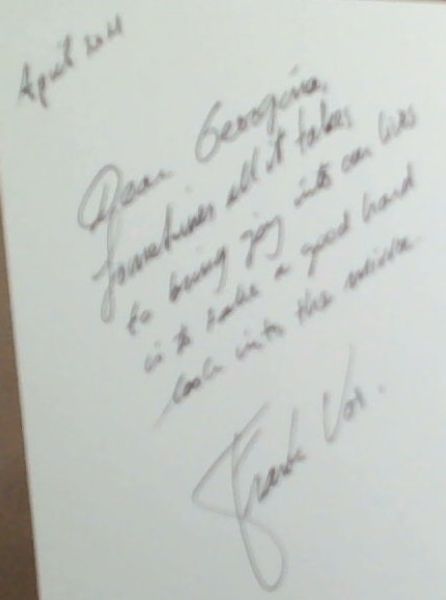 April 2021
Dear Georgina,
Sometimes all it takes
to bring joy into our lives
is to take a good hard
look into the mirror.
Frank Vos.